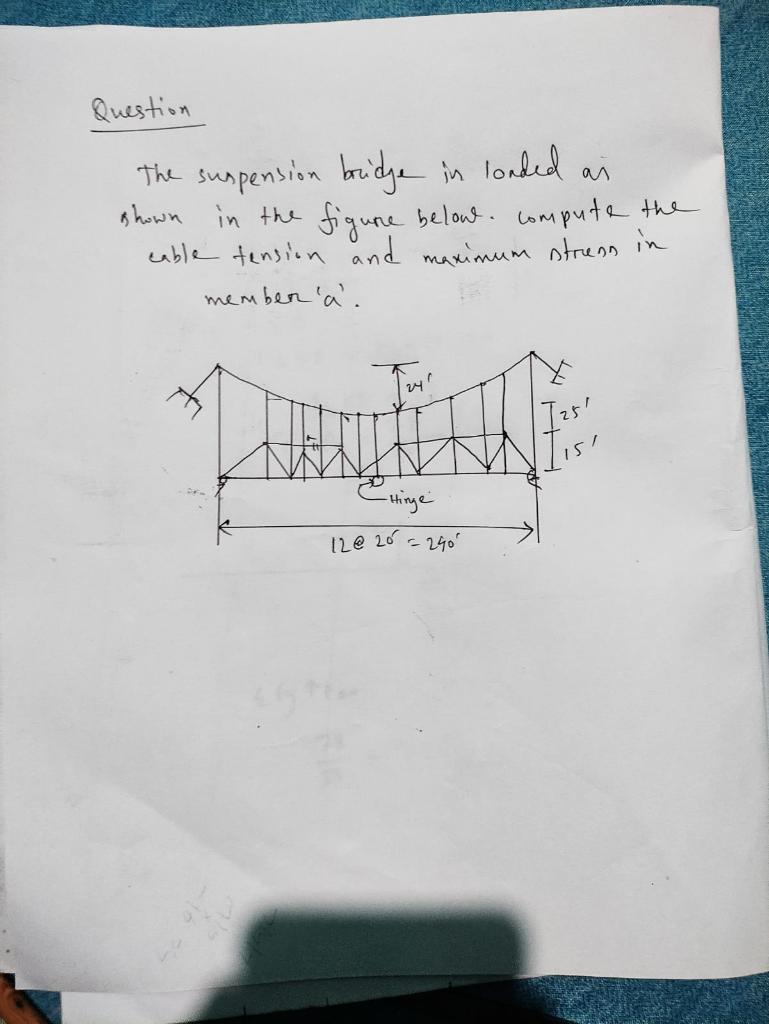 Question
The suspension bridge is loaded as
shown in the figure below. compute the
cable tension and maximum stress in
member 'a'.
24'
25'
15'
Hinge
12@ 20' = 240'